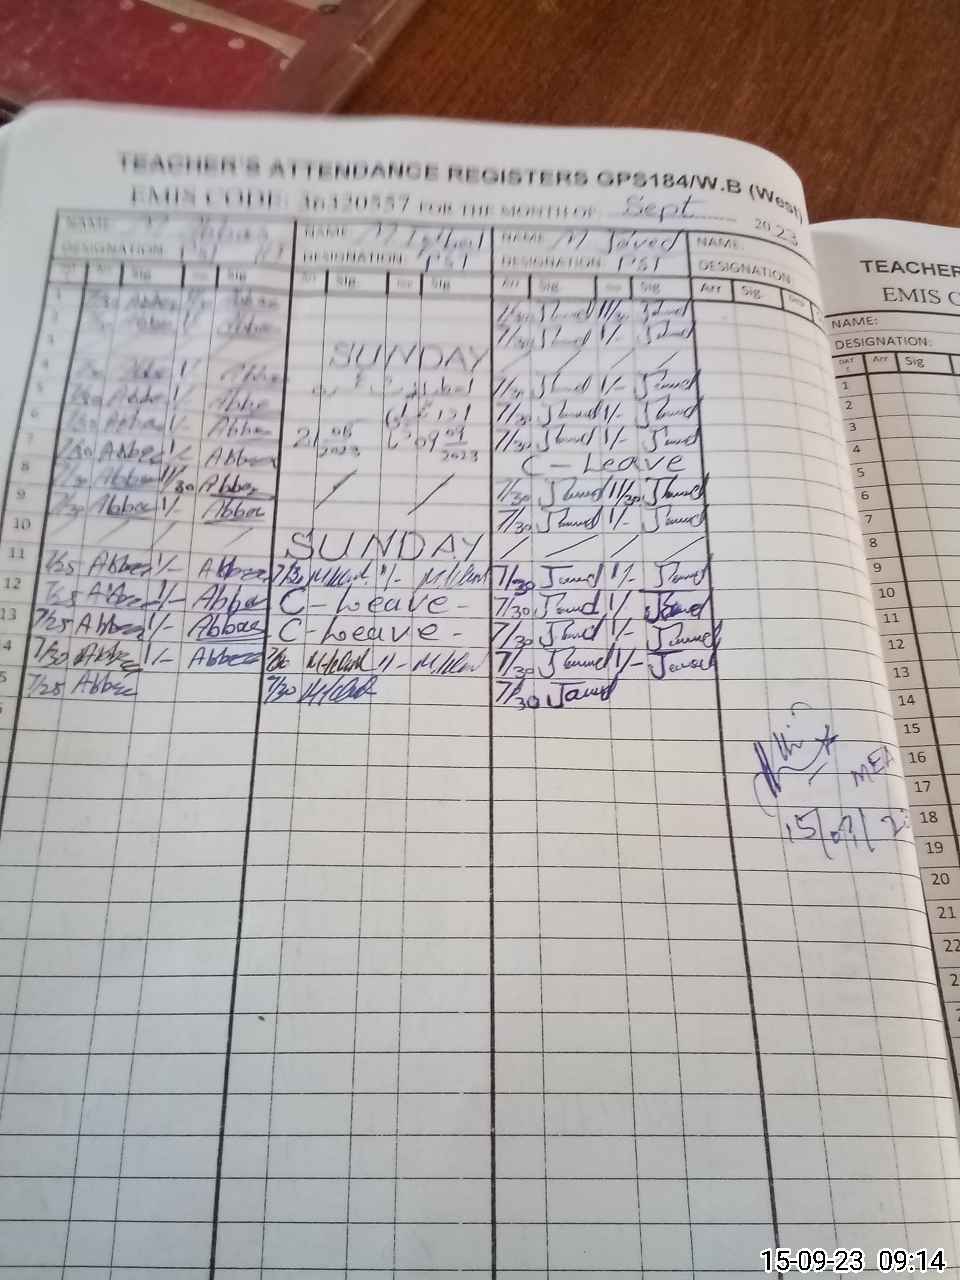 TEACHER'S ATTENDANCE REGISTERS GPS184/W.B (West)
EMIS CODE: 36320557 FOR THE MONTH OF Sept 2023
NAME M Abbas NAME M NAME M Javed NAME:
DESIGNATION: PST DESIGNATION PST DESIGNATION PST DESIGNATION:
Arr Sig Sig Arr Sig Sig Arr Sig Sig Arr Sig. Dep
1 7/30 Abbas 1/- Abbas 7/30 Javed 11/30 Javed
2 7/30 Abbas 1/- Abbas 7/30 Javed 1/- Javed
3 / / SUNDAY / / /
4 7/30 Abbas 1/- Abbas 7/30 Javed 1/- Javed
5 7/30 Abbas 1/- Abbas 7/30 Javed 1/- Javed
6 7/30 Abbas 1/- Abbas 2023 09 09 2023 7/30 Javed 1/- Javed
7 7/30 Abbas 1/- Abbas C-Leave
8 7/30 Abbas 11/30 Abbas / / 7/30 Javed 11/30 Javed
9 7/30 Abbas 1/- Abbas 7/30 Javed 1/- Javed
10 / / / / SUNDAY / / / /
11 7/25 Abbas 1/- Abbas 7/30 1/- 7/30 Javed 1/- Javed
12 7/25 Abbas 1/- Abbas C-Leave- 7/30 Javed 1/- Javed
13 7/25 Abbas 1/- Abbas C-Leave- 7/30 Javed 1/- Javed
14 7/30 Abbas 1/- Abbas 7/30 1/- 7/30 Javed 1/- Javed
15 7/25 Abbas 7/30 7/30 Javed
MEA
15/09/23
TEACHER
EMIS C
NAME:
DESIGNATION:
DATE Arr Sig
1
2
3
4
5
6
7
8
9
10
11
12
13
14
15
16
17
18
19
20
21
22
15-09-23 09:14